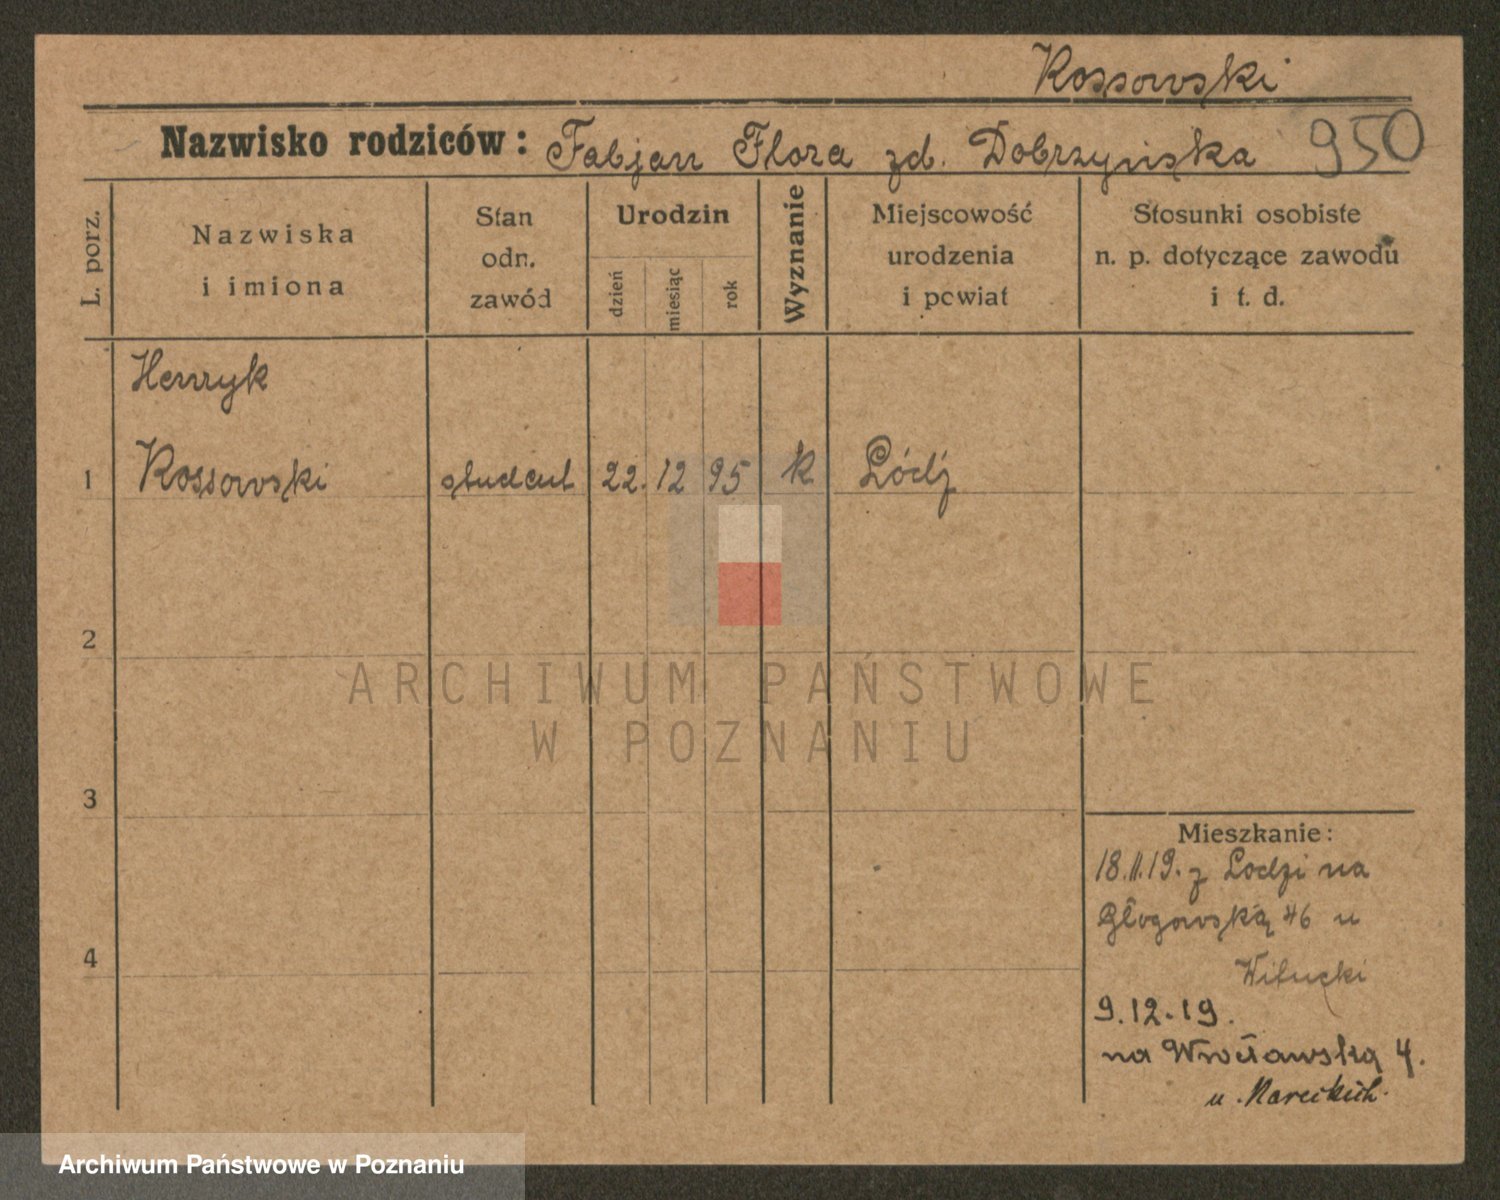 Kossowski
Nazwisko rodziców: Fabjan Flora zd. Dobrzyńska 950
L. porz.
Nazwiska
i imiona
Stan
odn.
zawód
Urodzin
dzień
miesiąc
rok
Wyznanie
Miejscowość
urodzenia
i powiat
Stosunki osobiste
n. p. dotyczące zawodu
i t. d.
Henryk
1 Kossowski student 22. 12 95 k Łódź
2
3
4
Mieszkanie:
18.11.19. z Lodzi na
Głogowską 46 u
9.12.19.
na Wrocławską 4.
u
ARCHIWUM PAŃSTWOWE
W POZNANIU
Archiwum Państwowe w Poznaniu